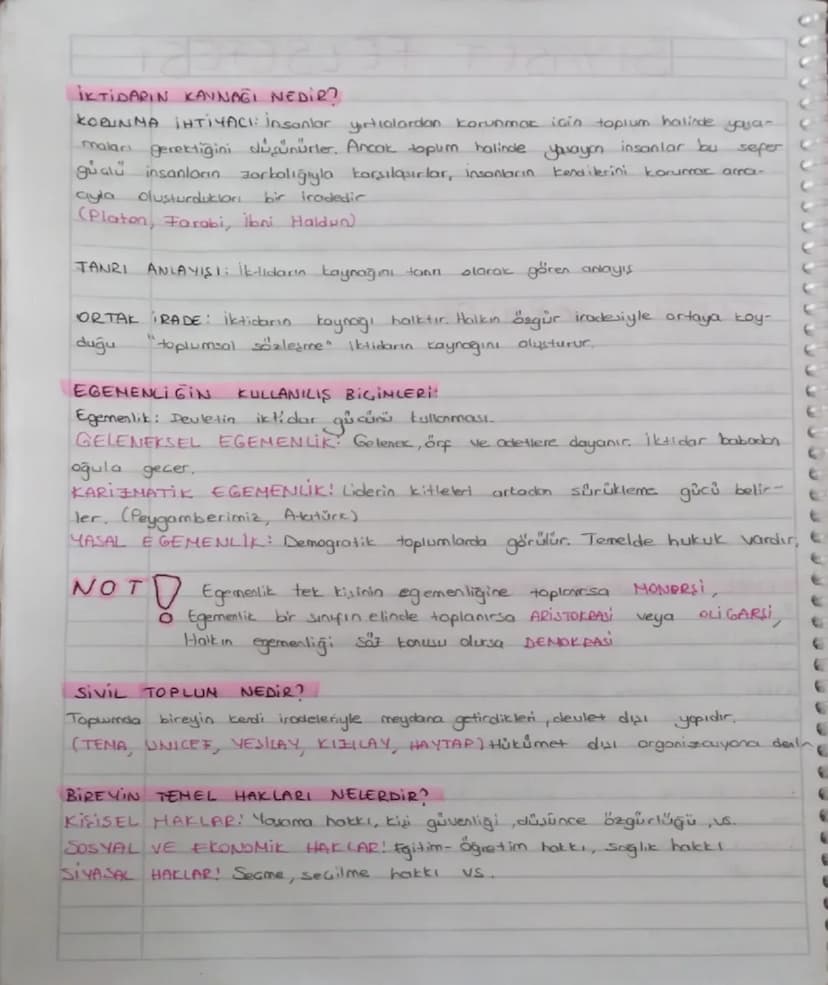 İKTİDARIN KAYNAĞI NEDİR?
KORUNMA İHTİYACI: İnsanlar yırtıcılardan korunmak için toplum halinde yaşa-
maları gerektiğini düşünürler. Ancak toplum halinde yaşayan insanlar bu sefer
güçlü insanların zorbalığıyla karşılaşırlar, insanların kendilerini korumak ama-
cıyla oluşturdukları bir iradedir
(Platon, Farabi, İbni Haldun)
TANRI ANLAYIŞI: İktidarın kaynağını tanrı olarak gören anlayış
ORTAK İRADE: İktidarın kaynağı halktır. Halkın özgür iradesiyle ortaya koy-
duğu "toplumsal sözleşme" iktidarın kaynağını oluşturur.
EGEMENLİĞİN KULLANILIŞ BİÇİMLERİ:
Egemenlik: Devletin iktidar gücünü kullanması.
GELENEKSEL EGEMENLİK: Gelenek, örf ve adetlere dayanır. İktidar babadan
oğula geçer.
KARİZMATİK EGEMENLİK: Liderin kitleleri arkadan sürükleme gücü belir-
ler. (Peygamberimiz, Atatürk)
YASAL EGEMENLİK: Demogratik toplumlarda görülür. Temelde hukuk vardır.
NOT! Egemenlik tek kişinin egemenliğine toplanırsa MONARŞİ,
Egemenlik bir sınıfın elinde toplanırsa ARİSTOKRASİ veya OLİGARŞİ,
Halkın egemenliği söz konusu olursa DEMOKRASİ
SİVİL TOPLUN NEDİR?
Toplumda bireyin kendi iradeleriyle meydana getirdikleri, devlet dışı yapıdır.
(TEMA, UNICEF, YEŞİLAY, KIZILAY, HAYTAP) Hükümet dışı organizasyona denir
BİREYİN TEMEL HAKLARI NELERDİR?
KİŞİSEL HAKLAR: Yaşama hakkı, kişi güvenliği, düşünce özgürlüğü, vs.
SOSYAL VE EKONOMİK HAKLAR: Eğitim-Öğretim hakkı, sağlık hakkı
SİYASAL HAKLAR: Seçme, seçilme hakkı vs.